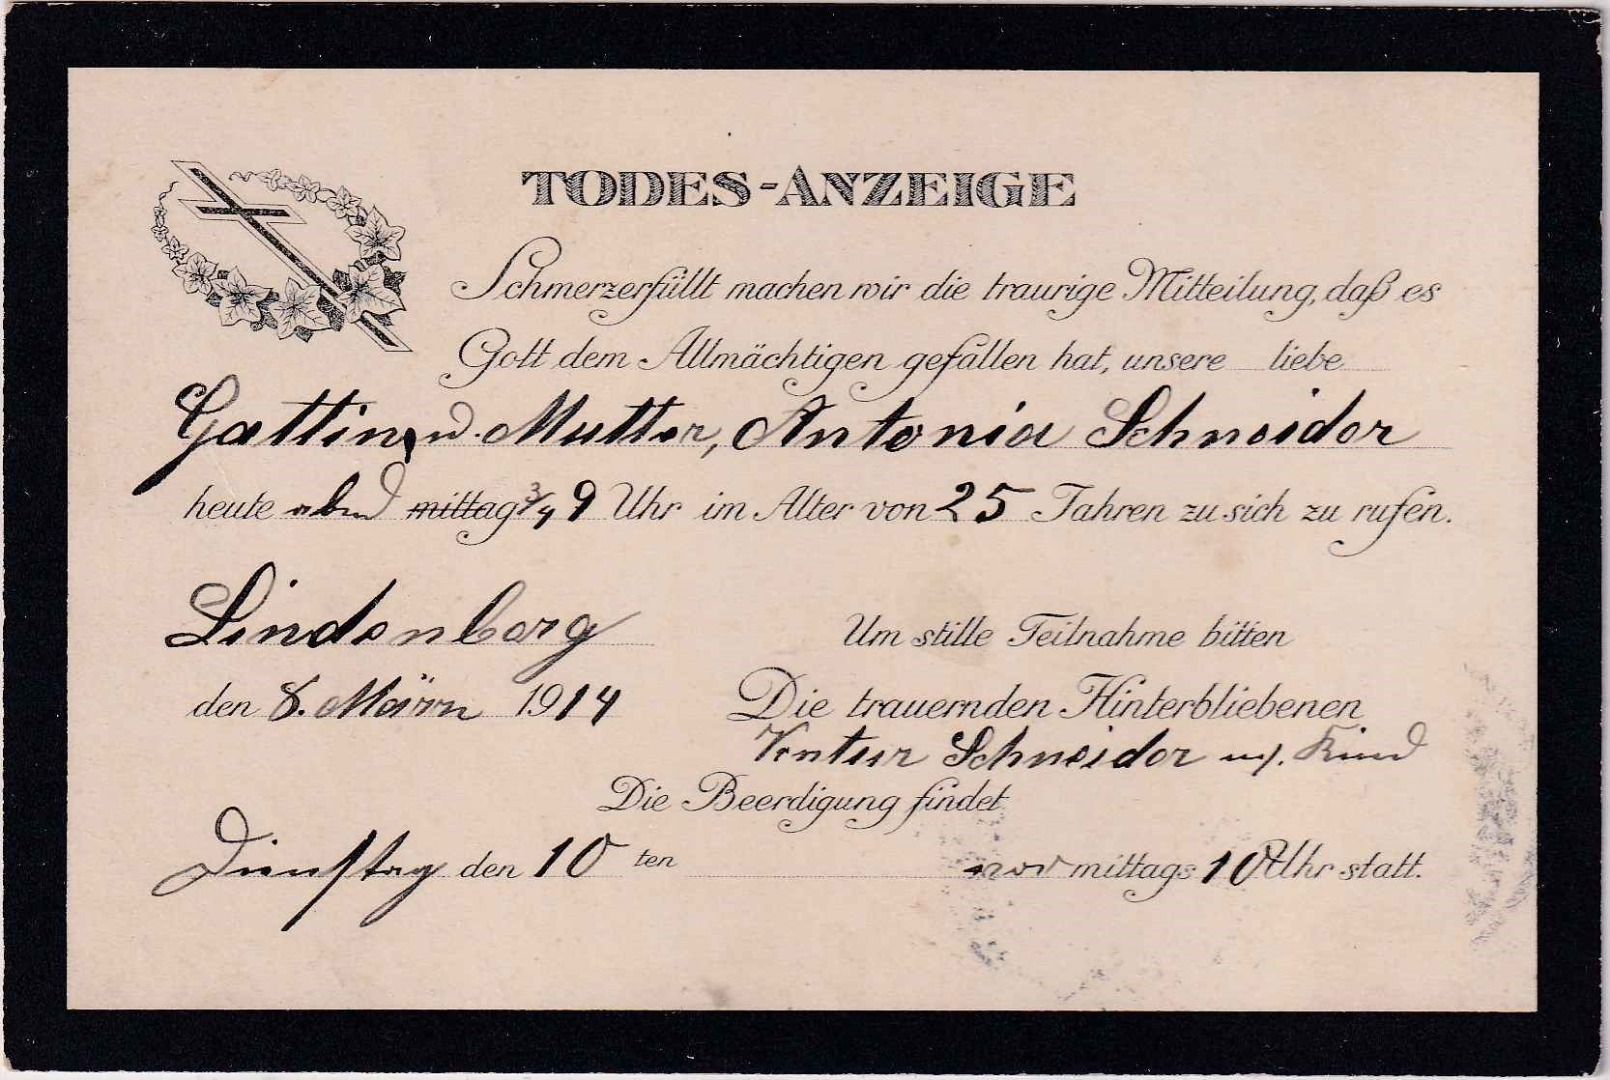 TODES-ANZEIGE
Schmerzerfüllt machen wir die traurige Mitteilung, daß es
Gott dem Allmächtigen gefallen hat, unsere liebe
Gattin u. Mutter, Antonia Schneider
heute abend mittag 3/4 9 Uhr im Alter von 25 Jahren zu sich zu rufen.
Lindenberg
den 8. März 1914
Um stille Teilnahme bitten
Die trauernden Hinterbliebenen
Schneider m. Kind
Die Beerdigung findet
Dienstag den 10 ten vor mittags 10 Uhr statt.